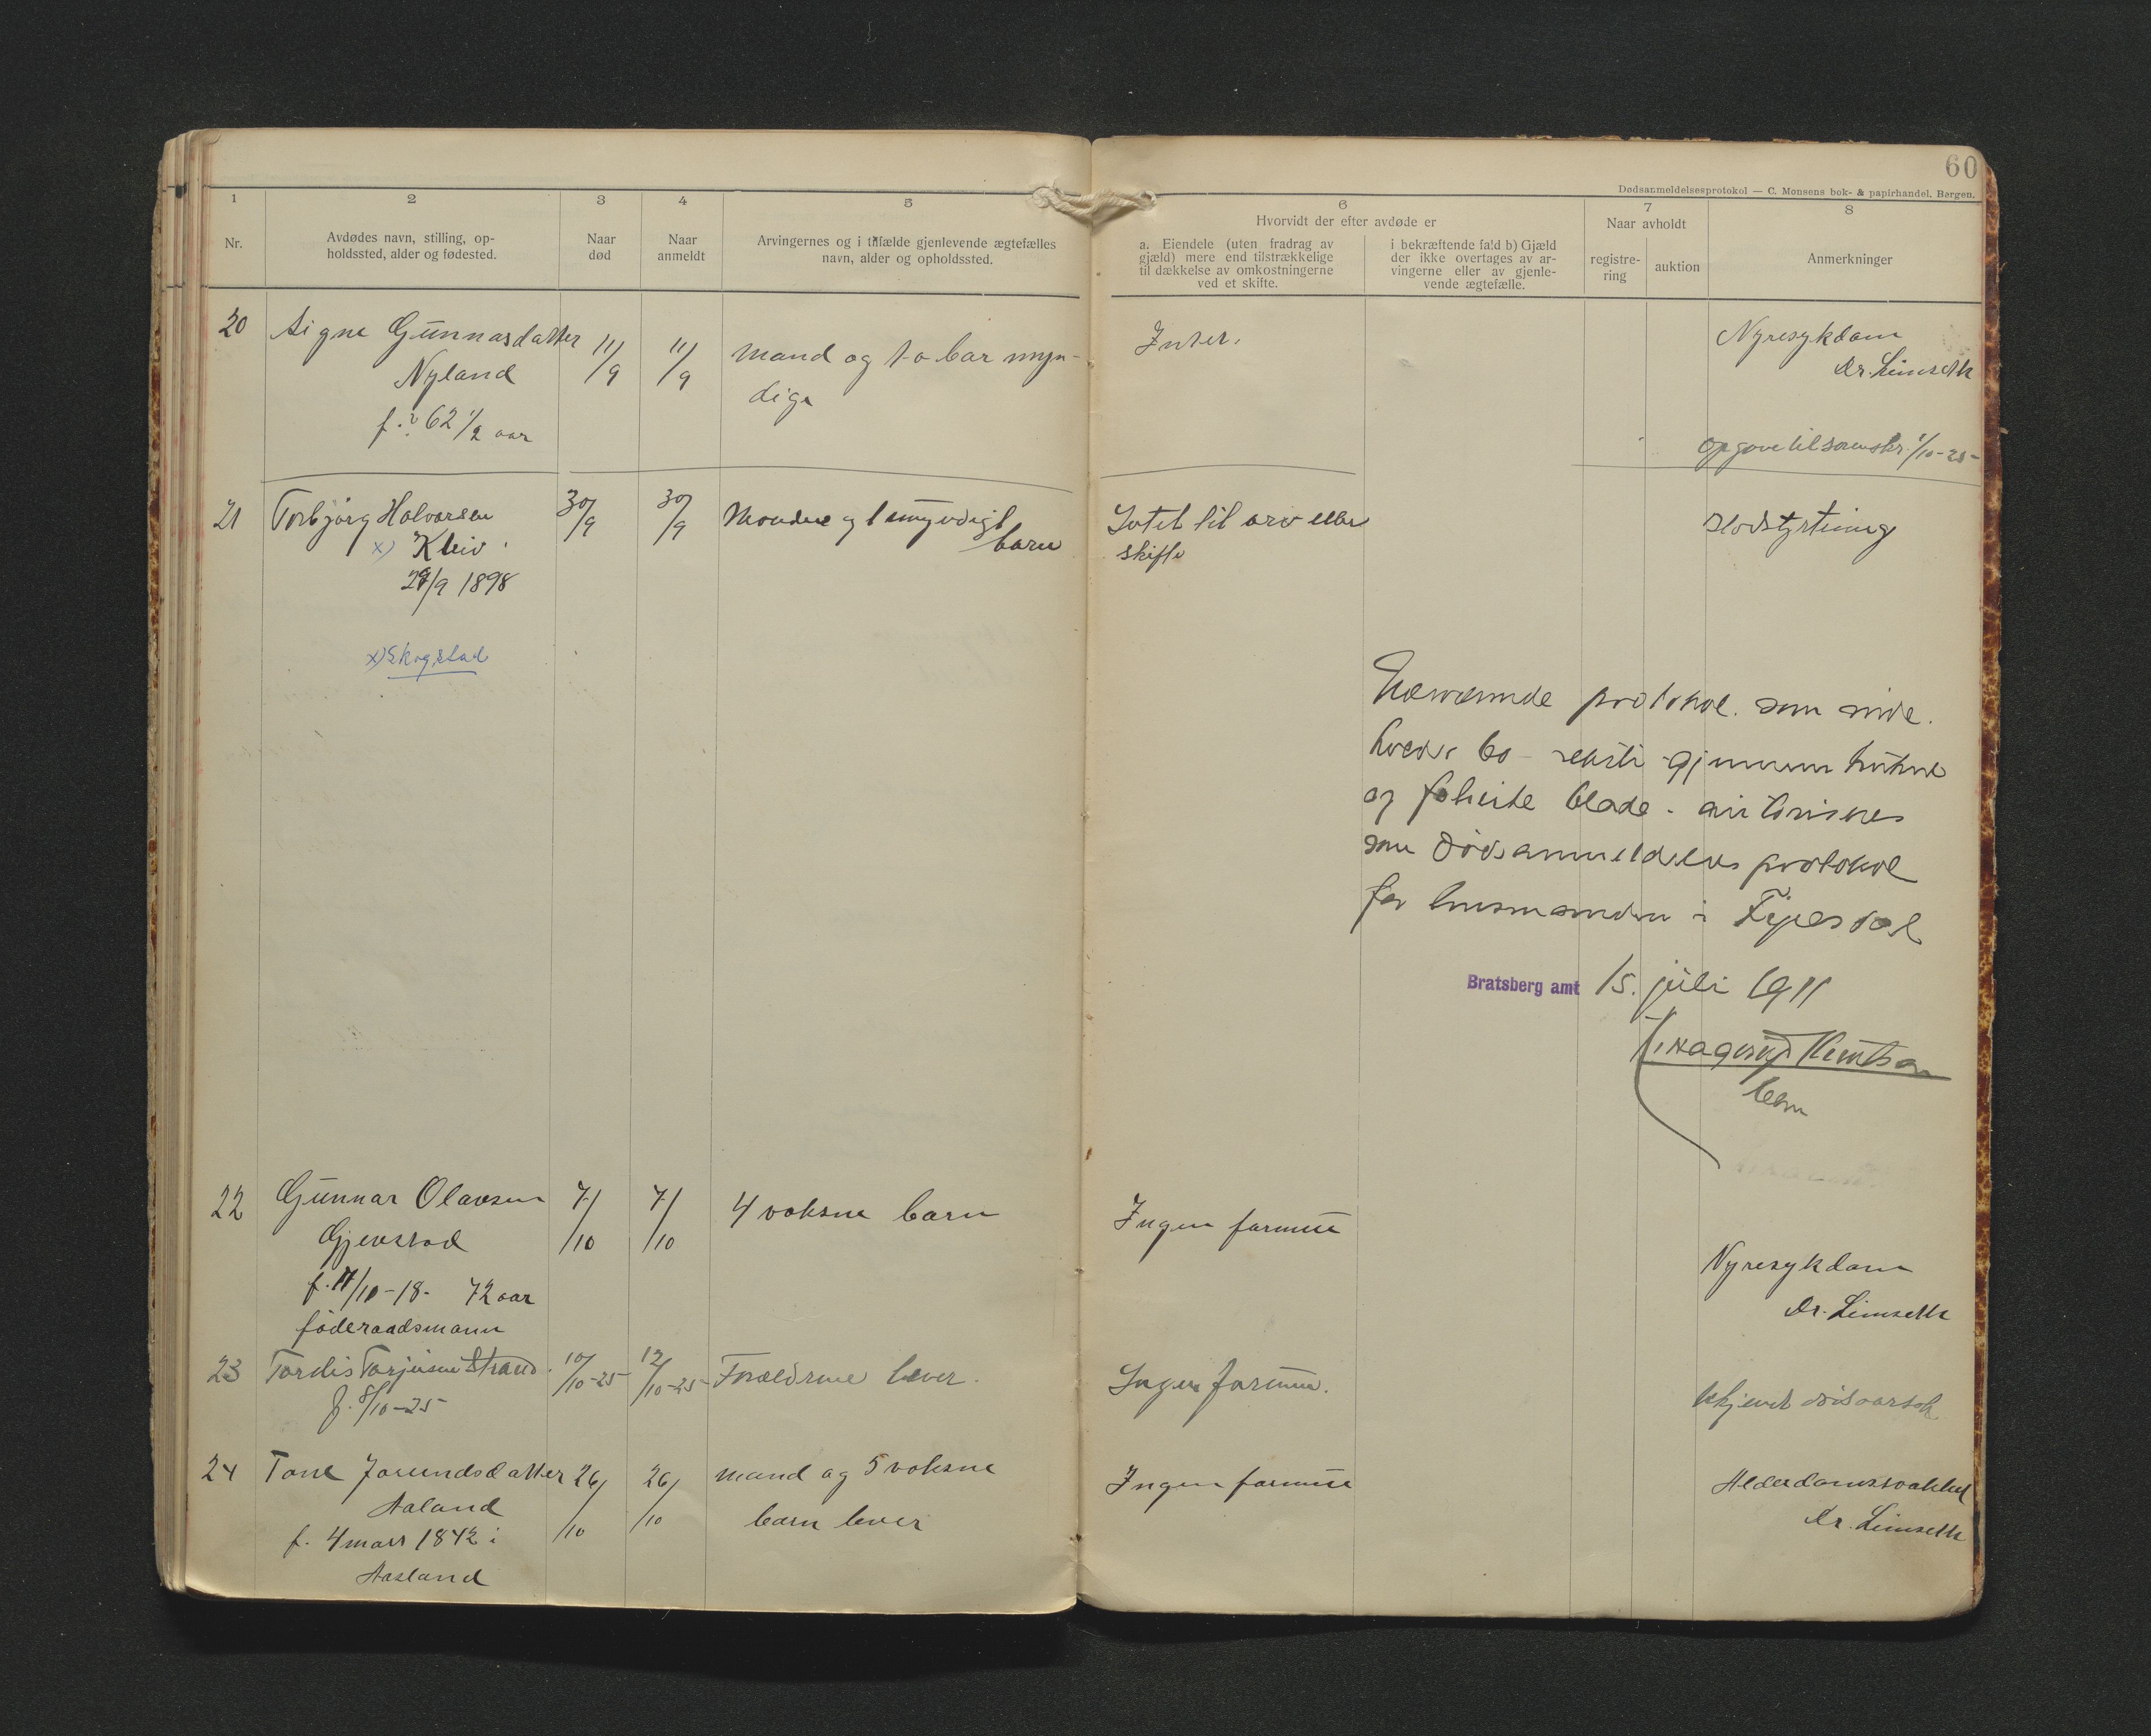 60
Dødsanmeldelsesprotokol — C. Monsens bok- & papirhandel, Bergen.
1
Nr.
2
Avdødes navn, stilling, op-
holdssted, alder og fødested.
3
Naar
død
4
Naar
anmeldt
5
Arvingernes og i tilfælde gjenlevende ægtefælles
navn, alder og opholdssted.
6
Hvorvidt der efter avdøde er
a. Eiendele (uten fradrag av
gjæld) mere end tilstrækkelige
til dækkelse av omkostningerne
ved et skifte.
i bekræftende fald b) Gjæld
der ikke overtages av ar-
vingerne eller av gjenle-
vende ægtefælle.
7
Naar avholdt
registre-
ring
auktion
8
Anmerkninger
20
Signe Gunnarsdatter
Nyland
f. ? 62 1/2 aar
11/9
11/9
Mand og to bar myn-
dige
Intet.
Nyresykdom
Dr. Limseth
opgave til sorenskr. 1/10-25
21
Torbjørg Halvorsen
x) Kleiv.
29/9 1898
x) Skogstad
30/9
30/9
Manden og 1 umyndigt
barn
Intet til arv eller
skifte
Blodstyrtning
Nærværende protokol som inde-
holder 60 - seksti gjennem
og folierte blade - autoriseres
som dødsanmeldelses protokol
for lensmanden i Fyresdal
Bratsberg amt 15. juli 1911
22
Gunnar Olavsen
Gjevstad
f. /10-18- 72 aar
føderaadsmann
7/10
7/10
4 voksne barn
Ingen formue
Nyresykdom
Dr. Limseth
23
Tordis Torjusen Strand.
f. 8/10-25
10/10-25
12/10-25
Forældrene lever.
Ingen formue.
Ukjent dødsaarsak
24
Tone Jorundsdatter
Aaland
f. 4 mars 1842 i
Aasland
26/10
26/10
mand og 5 voksne
barn lever
Ingen formue
Alderdomssvakhet
Dr. Limseth